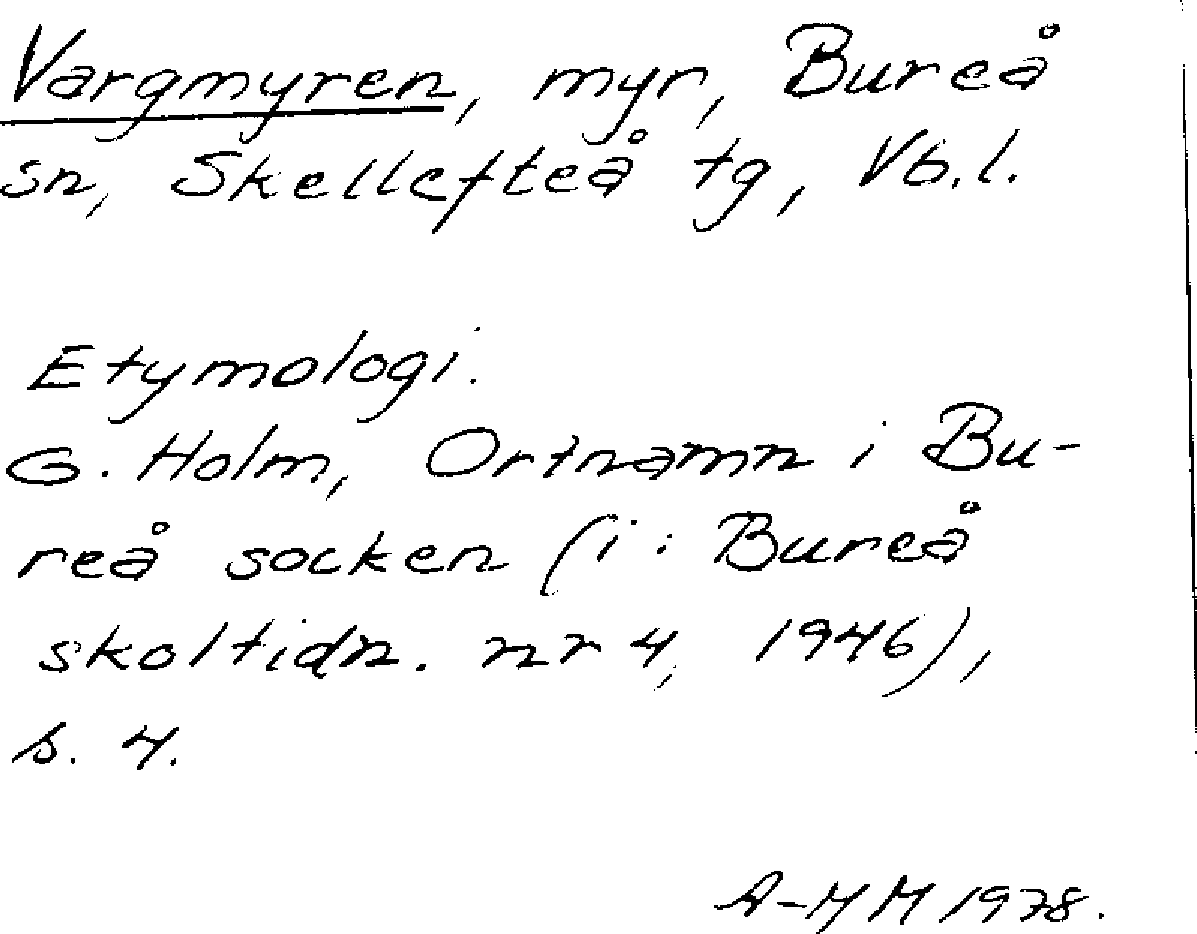 Vargmyren, myr, Bureå
sn, Skellefteå tg, Vb.l.
Etymologi.
G. Holm, Ortnamn i Bu-
reå socken (i: Bureå
skoltidn. nr 4, 1946),
s. 4.
A-M M 1978.